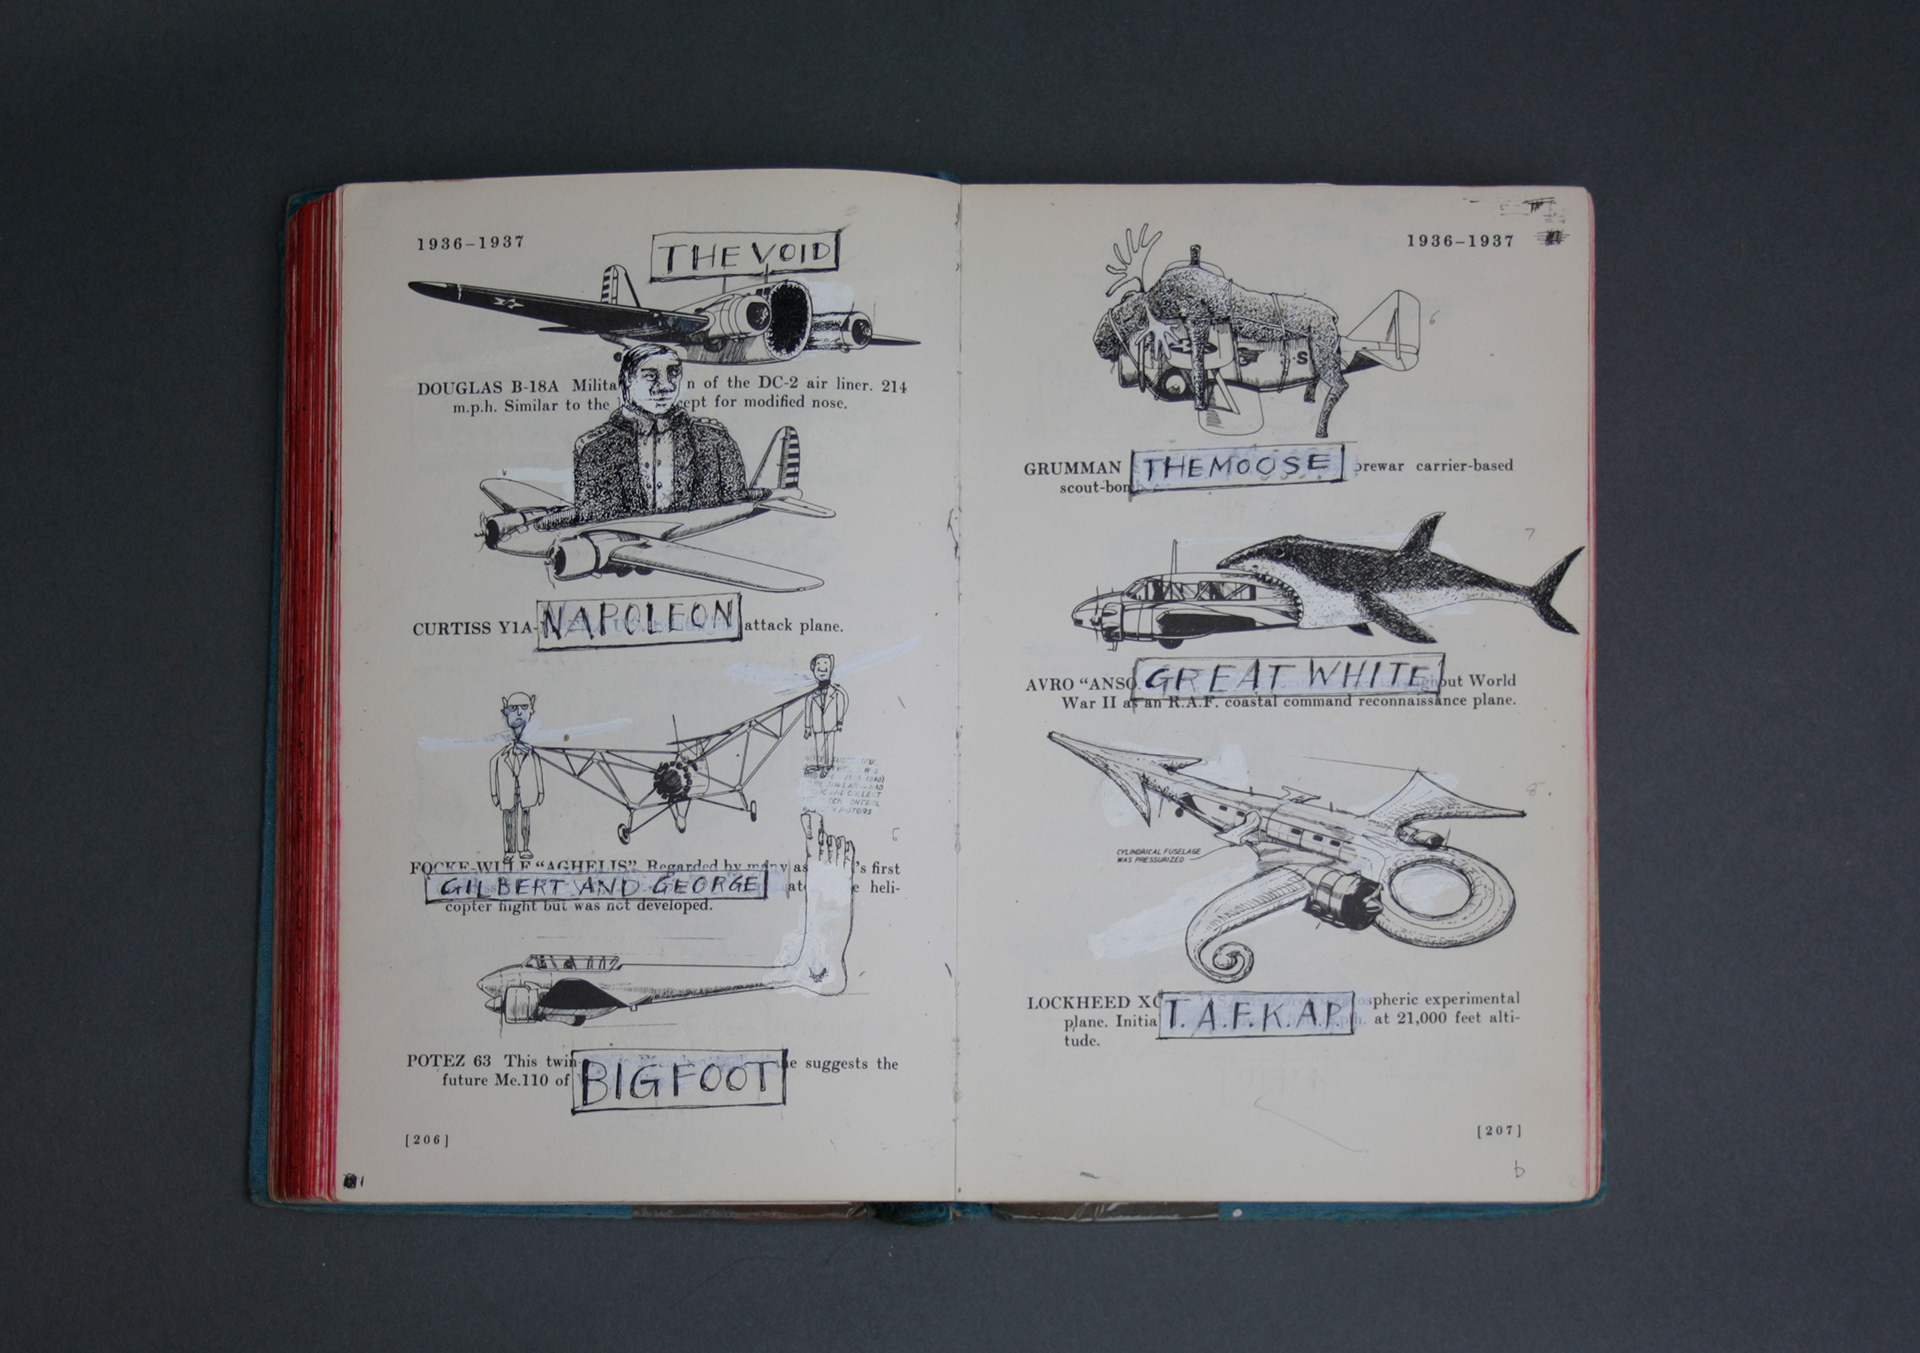 1936-1937
THE VOID
DOUGLAS B-18A Milita n of the DC-2 air liner. 214
m.p.h. Similar to the cept for modified nose.
CURTISS Y1A- NAPOLEON attack plane.
FOCKE-WULF "AGHELIS" Regarded by many as 's first
GILBERT AND GEORGE heli-
copter flight but was not developed.
POTEZ 63 This twin suggests the
future Me.110 of BIGFOOT
[206]
1936-1937
6
GRUMMAN THE MOOSE prewar carrier-based
scout-bom
7
AVRO "ANSO GREAT WHITE hout World
War II as an R.A.F. coastal command reconnaissance plane.
8.
CYLINDRICAL FUSELAGE
WAS PRESSURIZED
LOCKHEED XC T.A.F.K.A.P. spheric experimental
plane. Initia at 21,000 feet alti-
tude.
[207]
b